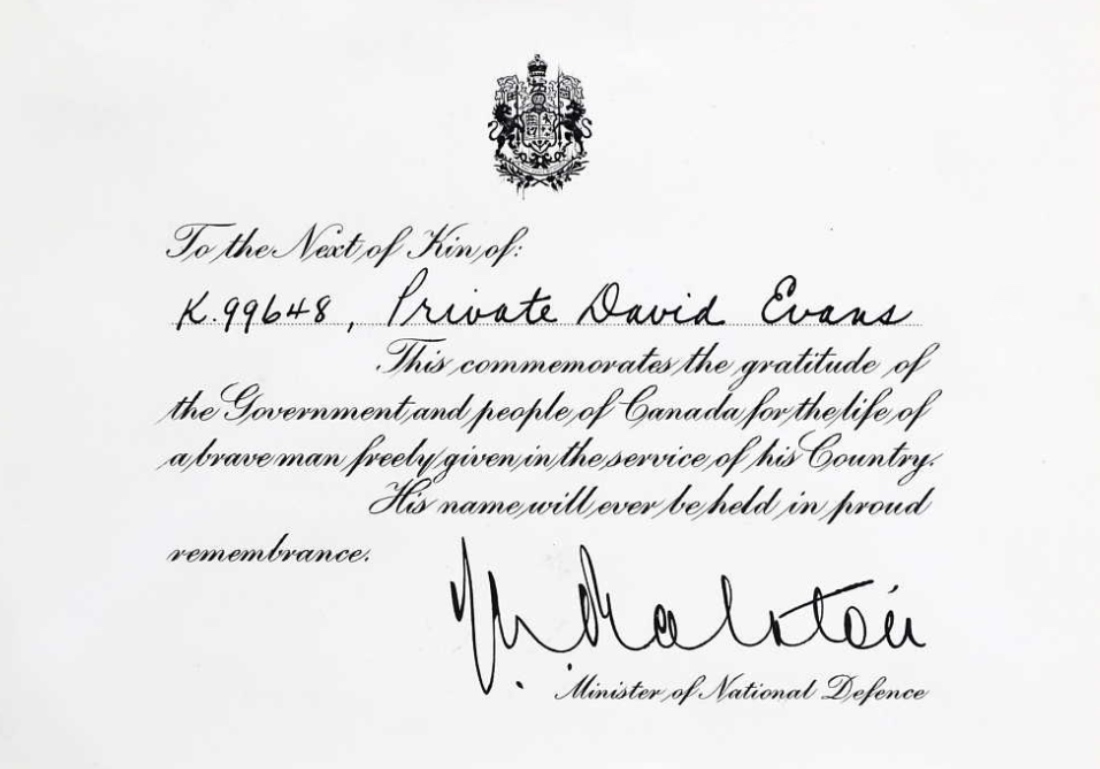 To the Next of Kin of:
K.99648, Private David Evans
This commemorates the gratitude of
the Government and people of Canada for the life of
a brave man freely given in the service of his Country.
His name will ever be held in proud
remembrance.
Ralston
Minister of National Defence